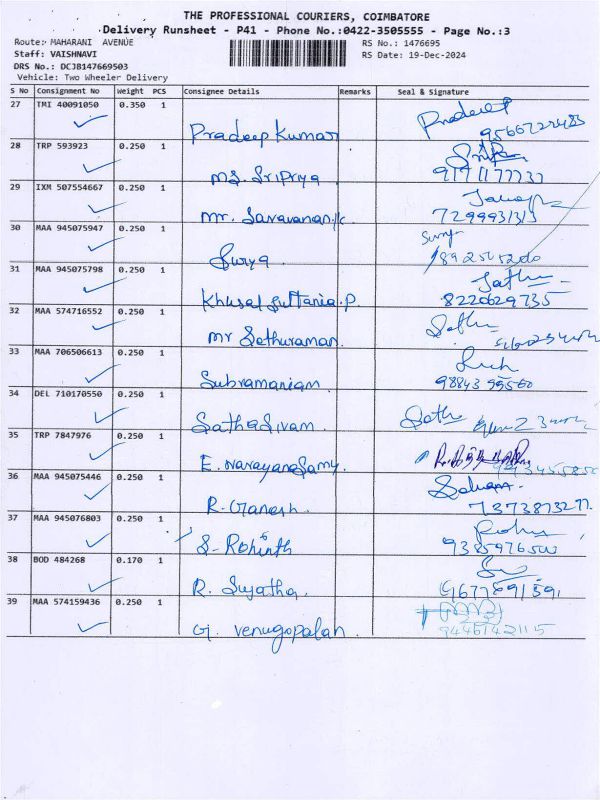 THE PROFESSIONAL COURIERS, COIMBATORE
Delivery Runsheet - P41 - Phone No.:0422-3505555 - Page No.:3
Route: MAHARANI AVENUE
RS No.: 1476695
Staff: VAISHNAVI
RS Date: 19-Dec-2024
DRS No.: DCJB147669503
Vehicle: Two Wheeler Delivery
S No Consignment No Weight PCS Consignee Details Remarks Seal & Signature
27 TMI 40091050 0.350 1
Pradeep Kumar
28 TRP 593923 0.250 1
MS. Sripriya
29 IXM 507554667 0.250 1
Mr. Saravanan.k
7299931313
30 MAA 945075947 0.250 1
Surya
31 MAA 945075798 0.250 1
Khusal Suttania.P
8220629735
32 MAA 574716552 0.250 1
Mr Sethuraman
33 MAA 706506613 0.250 1
Subramaniam
34 DEL 710170550 0.250 1
SathaSivam
35 TRP 7847976 0.250 1
E. Narayanasamy
36 MAA 945075446 0.250 1
R. Ganesh
37 MAA 945076803 0.250 1
S. Rohinth
38 BOD 484268 0.170 1
R. Sujatha
39 MAA 574159436 0.250 1
G. Venugopalan